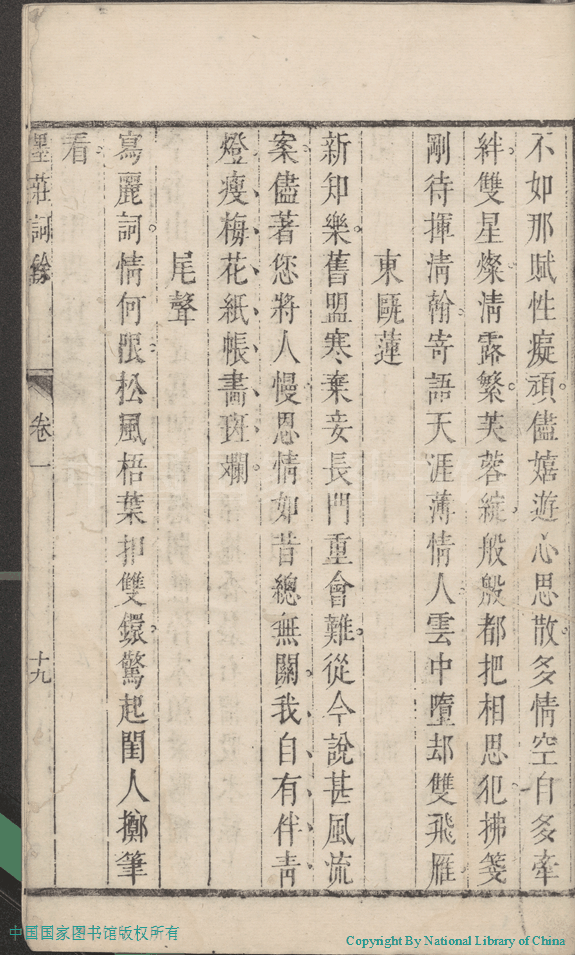 不如那賦性癡頑儘嬉遊心思散多情空自多牽
絆雙星燦清露繁芙蓉綻般般都把相思犯拂箋
剛待揮淸翰寄語天涯薄情人雲中墮却雙飛雁
東甌蓮
新知樂舊盟寒棄妾長門重會難從今說甚風流
案儘著您將人慢恩情如昔總無關我自有伴靑
燈瘦梅花紙帳畵斑斕
尾聲
寫麗詞情何限松風梧葉扣雙鐶驚起閨人擲筆
看
墨莊詞餘 卷一 十九
中国国家图书馆版权所有
Copyright By National Library of China